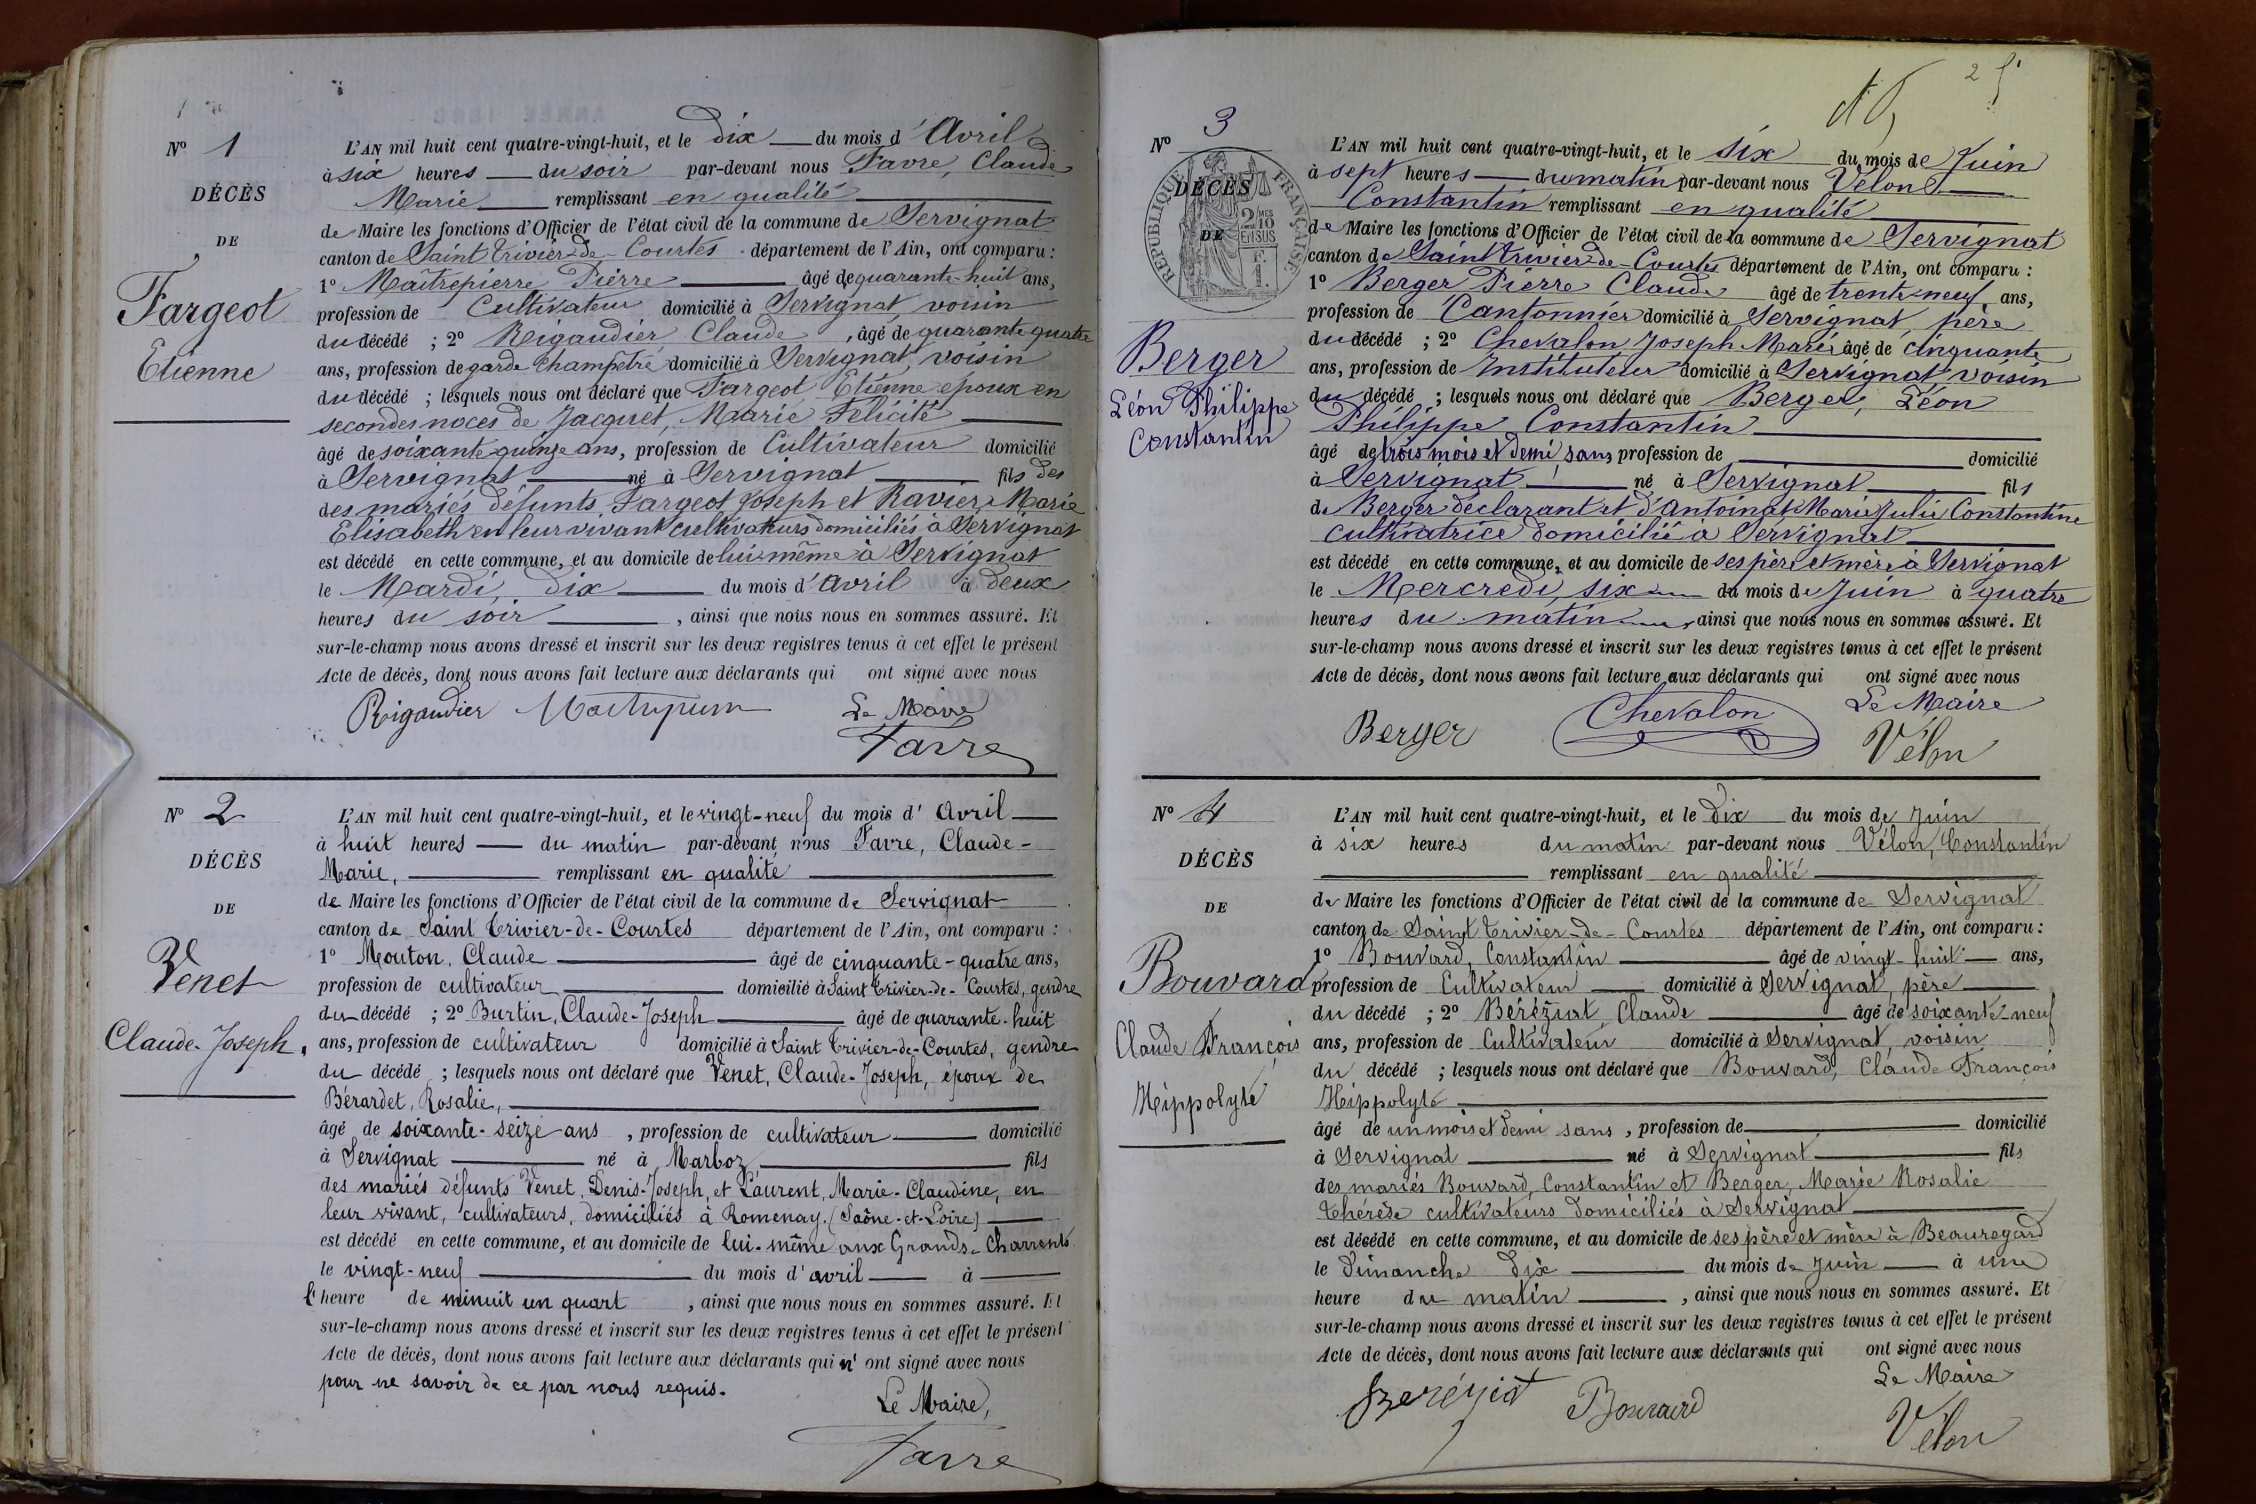 Nº 1
DÉCÈS
DE
Fargeot
Etienne
L'AN mil huit cent quatre-vingt-huit, et le dix du mois d'Avril
à six heures du soir par-devant nous Favre, Claude
Marie remplissant en qualité
de Maire les fonctions d'Officier de l'état civil de la commune de Servignat
canton de Saint Trivier-de-Courtes département de l'Ain, ont comparu :
1º Maîtrepierre Pierre âgé de quarante-huit ans,
profession de Cultivateur domicilié à Servignat, voisin
du décédé ; 2º Rigaudier Claude, âgé de quarante quatre
ans, profession de garde Champêtre domicilié à Servignat, voisin
du décédé ; lesquels nous ont déclaré que Fargeot Etienne époux en
secondes noces de Jacquet, Marie Félicité
âgé de soixante quinze ans, profession de Cultivateur domicilié
à Servignat né à Servignat fils des
des mariés défunts Fargeot Joseph et Ravier Marie
Elisabeth en leur vivant cultivateurs domiciliés à Servignat
est décédé en cette commune, et au domicile de lui-même à Servignat
le Mardi, dix du mois d'avril à deux
heures du soir, ainsi que nous nous en sommes assuré. Et
sur-le-champ nous avons dressé et inscrit sur les deux registres tenus à cet effet le présent
Acte de décès, dont nous avons fait lecture aux déclarants qui ont signé avec nous
Rigaudier Le Maire
Favre
Nº 2
DÉCÈS
DE
Venet
Claude-Joseph,
L'AN mil huit cent quatre-vingt-huit, et le vingt-neuf du mois d'Avril
à huit heures du matin par-devant nous Favre, Claude-
Marie, remplissant en qualité
de Maire les fonctions d'Officier de l'état civil de la commune de Servignat
canton de Saint Trivier-de-Courtes département de l'Ain, ont comparu :
1º Mouton, Claude âgé de cinquante-quatre ans,
profession de cultivateur domicilié à Saint Trivier-de-Courtes, gendre
du décédé ; 2º Burtin, Claude-Joseph âgé de quarante-huit
ans, profession de cultivateur domicilié à Saint Trivier-de-Courtes, gendre
du décédé ; lesquels nous ont déclaré que Venet, Claude-Joseph, époux de
Bérardet, Rosalie,
âgé de soixante-seize ans, profession de cultivateur domicilié
à Servignat né à Marboz fils
des mariés défunts Venet, Denis-Joseph, et Laurent, Marie-Claudine, en
leur vivant, cultivateurs, domiciliés à Romenay. (Saône-et-Loire)
est décédé en cette commune, et au domicile de lui-même aux Grands-Charrents
le vingt-neuf du mois d'avril à
l'heure de minuit un quart, ainsi que nous nous en sommes assuré. Et
sur-le-champ nous avons dressé et inscrit sur les deux registres tenus à cet effet le présent
Acte de décès, dont nous avons fait lecture aux déclarants qui n'ont signé avec nous
pour ne savoir de ce par nous requis.
Le Maire,
Favre
25
Nº 3
DÉCÈS
DE
RÉPUBLIQUE FRANÇAISE
2 MES 10 EN SUS
F. 1.
Berger
Léon Philippe
Constantin
L'AN mil huit cent quatre-vingt-huit, et le six du mois de Juin
à sept heures du matin par-devant nous Vélon
Constantin remplissant en qualité
de Maire les fonctions d'Officier de l'état civil de la commune de Servignat
canton de Saint Trivier-de-Courtes département de l'Ain, ont comparu :
1º Berger Pierre Claude âgé de trente-neuf ans,
profession de Cantonnier domicilié à Servignat, père
du décédé ; 2º Chevalon Joseph Marie âgé de cinquante
ans, profession de Instituteur domicilié à Servignat voisin
du décédé ; lesquels nous ont déclaré que Berger, Léon
Philippe Constantin
âgé de trois mois et demi, sans profession de domicilié
à Servignat né à Servignat fils
de Berger déclarant et d'Antoinat Marie Julie Constantine
cultivatrice domiciliée à Servignat
est décédé en cette commune, et au domicile de ses père et mère à Servignat
le Mercredi, six du mois de Juin à quatre
heures du matin, ainsi que nous nous en sommes assuré. Et
sur-le-champ nous avons dressé et inscrit sur les deux registres tenus à cet effet le présent
Acte de décès, dont nous avons fait lecture aux déclarants qui ont signé avec nous
Berger Chevalon Le Maire
Vélon
Nº 4
DÉCÈS
DE
Bouvard
Claude François
Hippolyte
L'AN mil huit cent quatre-vingt-huit, et le dix du mois de Juin
à six heures du matin par-devant nous Vélon, Constantin
remplissant en qualité
de Maire les fonctions d'Officier de l'état civil de la commune de Servignat
canton de Saint Trivier-de-Courtes département de l'Ain, ont comparu :
1º Bouvard, Constantin âgé de vingt-huit ans,
profession de Cultivateur domicilié à Servignat, père
du décédé ; 2º Béréziat, Claude âgé de soixante-neuf
ans, profession de Cultivateur domicilié à Servignat, voisin
du décédé ; lesquels nous ont déclaré que Bouvard, Claude François
Hippolyte
âgé de un mois et demi sans, profession de domicilié
à Servignat né à Servignat fils
des mariés Bouvard, Constantin et Berger, Marie Rosalie
Thérèse cultivateurs domiciliés à Servignat
est décédé en cette commune, et au domicile de ses père et mère à Beauregard
le Dimanche dix du mois de Juin à une
heure du matin, ainsi que nous nous en sommes assuré. Et
sur-le-champ nous avons dressé et inscrit sur les deux registres tenus à cet effet le présent
Acte de décès, dont nous avons fait lecture aux déclarants qui ont signé avec nous
Le Maire
Bereziat Bouvard Vélon